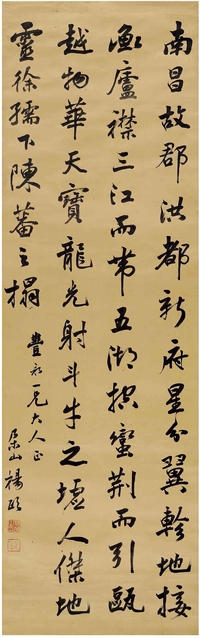 南昌故郡洪都新府星分翼軫地接
衡廬襟三江而帶五湖控蠻荊而引甌
越物華天寶龍光射斗牛之墟人傑地
靈徐孺下陳蕃之榻
大人正
楊